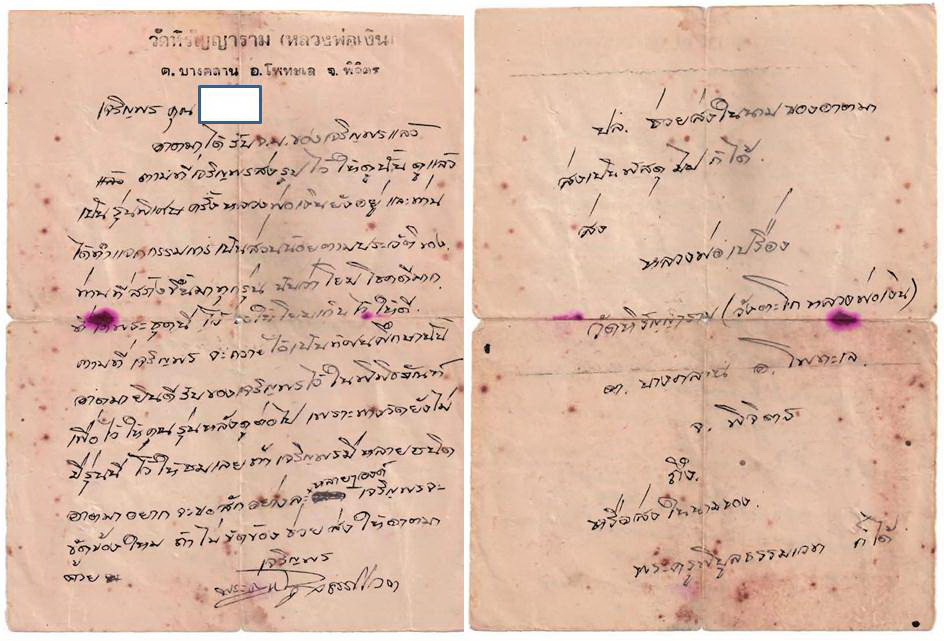 วัดหิรัญญาราม (หลวงพ่อเงิน)
ต. บางคลาน อ. โพทะเล จ. พิจิตร
เจริญพร คุณ
อาตมาได้รับ จ.ม. ของเจริญพรแล้ว
แล้ว ตามที่เจริญพรส่งรูปไว้ให้ดูนั้นดูแล้ว
เป็นรุ่นพิเศษ ครั้งหลวงพ่อเงินยังอยู่ และท่าน
ได้ทำแจกกรรมการเป็นส่วนน้อยตามประวัติของ
ท่านที่สร้างขึ้นมาทุกรุ่น นับว่าโยมโชคดีมาก
ที่ได้พระชุดนี้ไว้ ขอให้โยมเก็บไว้ให้ดี
ตามที่เจริญพร จะถวายไว้เป็นที่ศึกษานั้น
อาตมายินดีรับของเจริญพรไว้ในพิพิธภัณฑ์
เพื่อไว้ให้คนรุ่นหลังดูต่อไป เพราะทางวัดยังไม่
มีรุ่นนี้ไว้ให้ชมเลย ถ้าเจริญพรมีหลายชนิด
อาตมาอยากจะขอสักอย่างละ หลายๆองค์ เจริญพรจะ
ขัดข้องไหม ถ้าไม่ขัดข้องช่วยส่งให้อาตมา
ด้วย
เจริญพร
ปล. ช่วยส่งในนามของอาตมา
ส่งเป็นพัสดุไปก็ได้.
ส่ง
หลวงพ่อเปรื่อง
วัดหิรัญญาราม (วังตะโก หลวงพ่อเงิน)
ต. บางคลาน อ. โพทะเล
จ. พิจิตร
ถึง.
หรือส่งในนามของ.
พระครูพิบูลธรรมเวท ก็ได้